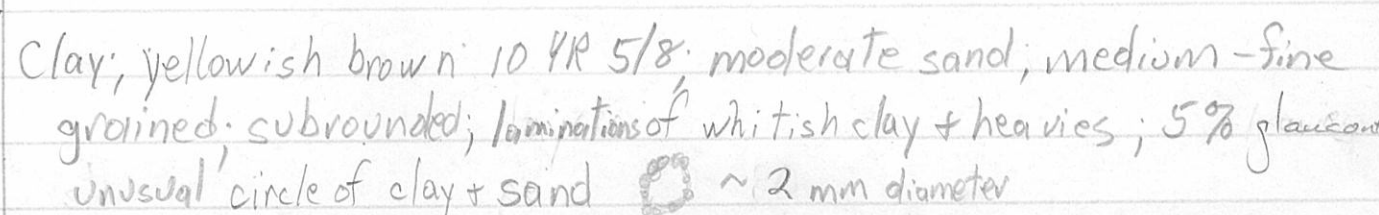 Clay; yellowish brown 10 YR 5/8; moderate sand; medium-fine
grained; subrounded; laminations of whitish clay + heavies; 5% glaucon
unusual circle of clay + sand ~ 2 mm diameter